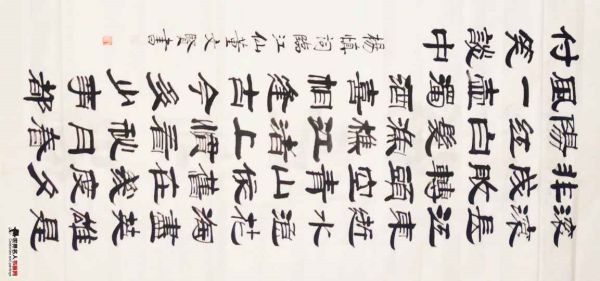 滾滾長江東逝水浪花淘盡英雄是
非成敗轉頭空青山依舊在幾度夕
陽紅白髮漁樵江渚上慣看秋月春
風一壺濁酒喜相逢古今多少事都
付笑談中
楊慎詞臨江仙董文賢書